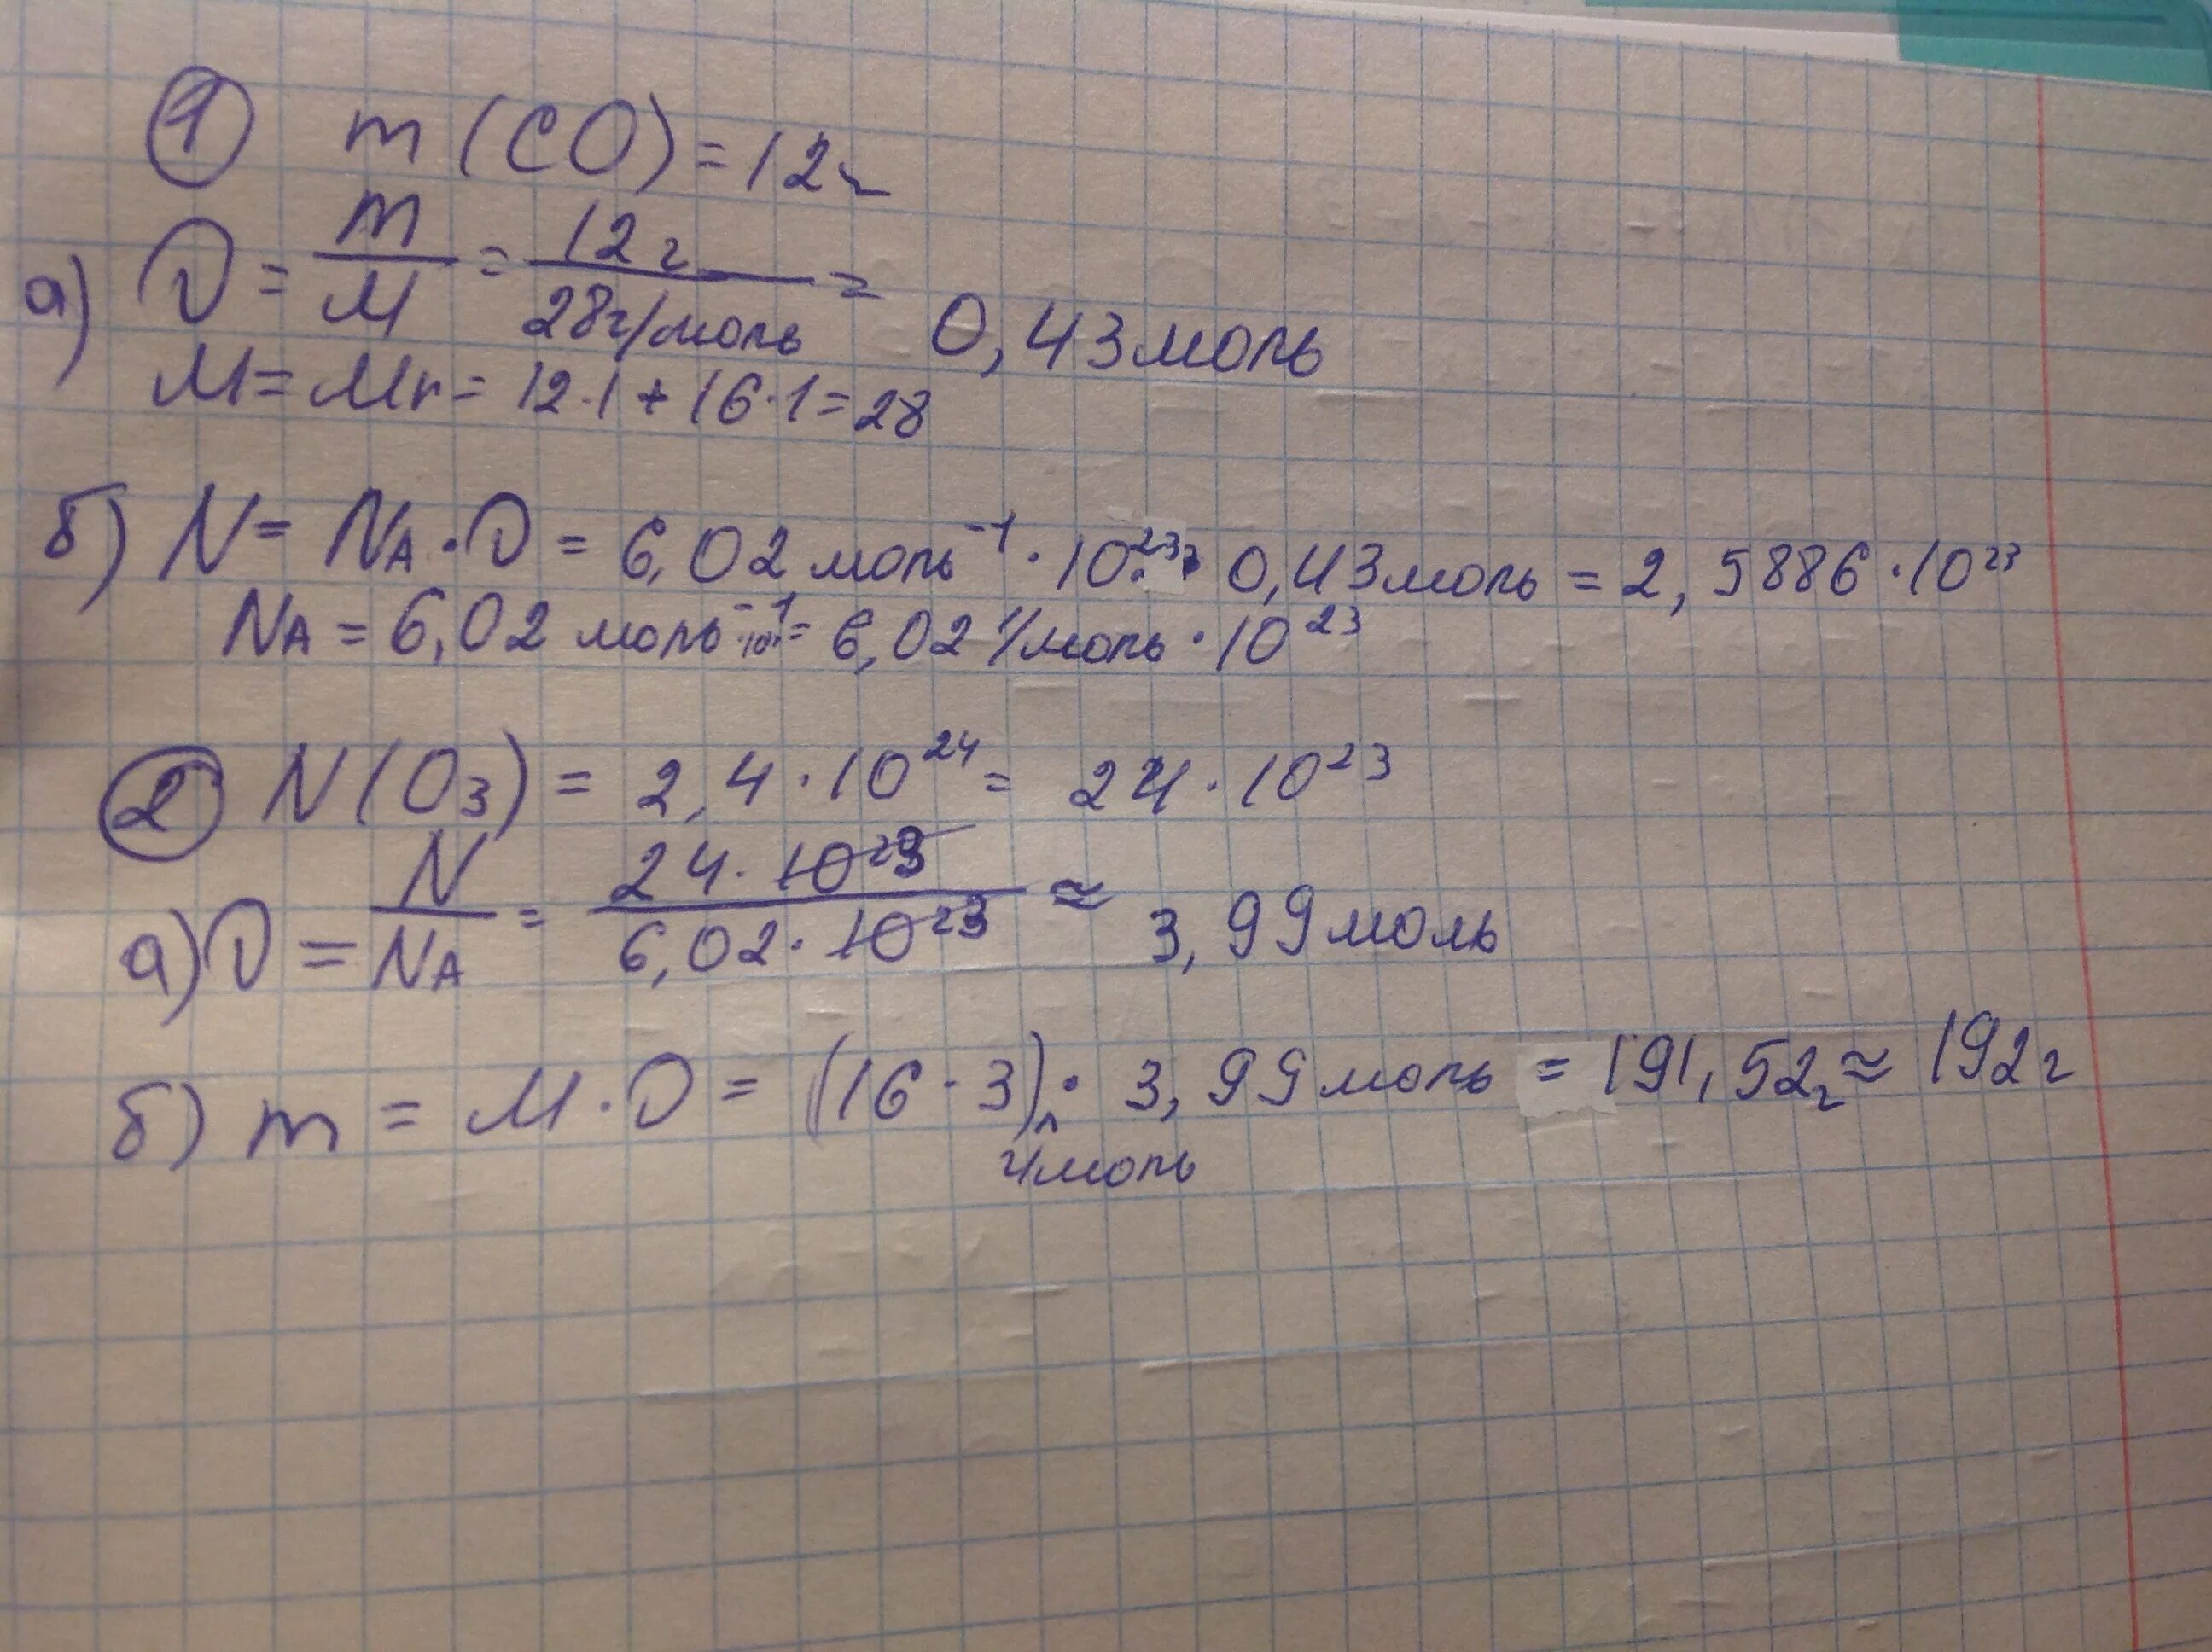 1 m (CO) = 12г
а) ν = m/M = 12г/28г/моль = 0,43моль
M = Mr = 12·1 + 16·1 = 28
б) N = NA · ν = 6,02 моль⁻¹ · 10²³ · 0,43моль = 2,5886 · 10²³
NA = 6,02 моль⁻¹ = 6,02 1/моль · 10²³
2 N (O₃) = 2,4 · 10²⁴ = 24 · 10²³
а) ν = N/NA = 24 · 10²³/6,02 · 10²³ ≈ 3,99моль
б) m = M · ν = (16 · 3) · 3,99моль = 191,52г ≈ 192г
г/моль